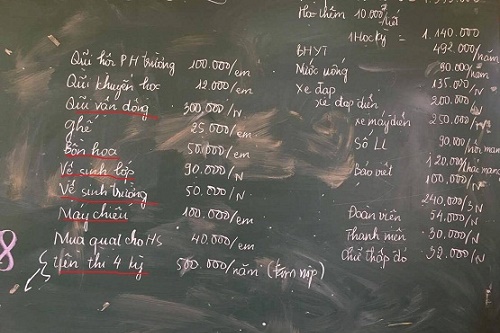 Quĩ hội PH trường 100.000/em
Quĩ khuyến học 12.000/em
Quĩ vận động 300.000/N
ghế 25.000/em
Bồn hoa 50.000/em
Vệ sinh lớp 90.000/N
Vệ sinh trường 50.000/N
Máy chiếu 100.000/em
Mua quạt cho HS 40.000/em
Tiền thi 4 kỳ 500.000/năm (tạm nộp)
8
Học thêm 10.000đ/tiết
1 Học kỳ = 1.140.000
BHYT 492.000/năm
Nước uống 80.000/năm
Xe đạp 135.000/N
xe đạp điện 200.000/N
xe máy điện 250.000/N
Sổ LL
Bảo việt 120.000
100.000
240.000/3N
Đoàn viên 54.000/N
Thanh niên 30.000/N
Chữ thập đỏ 32.000/N